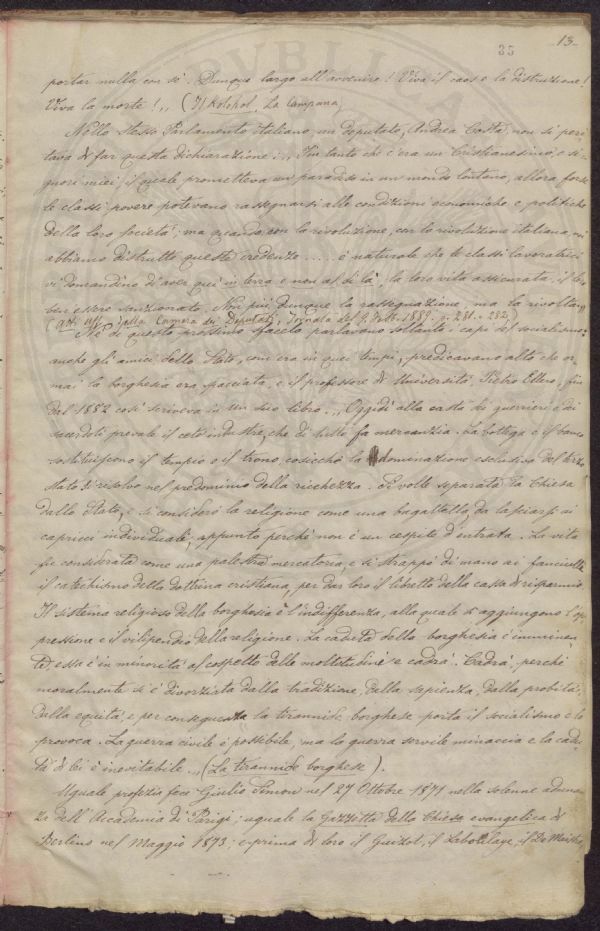 13.
35
portar nulla con sè. Dunque largo all'avvenire! Viva il caos e la distruzione!
Viva la morte! „ (Il Kolokol. La Campana)
Nello stesso Parlamento italiano, un deputato, Andrea Costa, non si peri
tava di far questa dichiarazione: „ Fin tanto che c'era un Cristianesimo, o si-
gnori miei, il quale prometteva un paradiso in un mondo lontano, allora forse
le classi povere potevano rassegnarsi alle condizioni economiche e politiche
della loro società; ma quando con la rivoluzione, con la rivoluzione italiana, voi
abbiamo distrutto queste credenze ..... è naturale che le classi lavoratrici
vi domandino d'aver qui in terra e non al di là, la loro vita assicurata, il lor
ben essere sanzionato. Non più dunque la rassegnazione, ma la rivolta „
(Atti Uff. della Camera dei Deputati, Tornata del 9 Febb. 1889. p. 281. e 282.)
Nè di questo prossimo sfacelo parlavano soltanto i capi del socialismo:
anche gli amici dello Stato, com'era in quei tempi, predicavano alto che or-
mai la borghesia era spacciata, e il professore di Università, Pietro Ellero, fin
dal 1882 così scriveva in un suo libro. „ Oggidì alla casta dei guerrieri e dei
sacerdoti prevale il ceto industre, che di tutto fa mercanzia. La bottega e il banco
sostituiscono il tempio e il trono, cosicchè la dominazione esclusiva del terzo
stato si risolve nel predominio della ricchezza. Si volle separata la Chiesa
dallo Stato, e si considerò la religione come una bagattella, da lasciarsi ai
capricci individuali, appunto perchè non è un cespite d'entrata. La vita
fu considerata come una palestra mercatoria, e si strappò di mano ai fanciulli
il catechismo della dottrina cristiana, per dar loro il libretto della cassa di risparmio.
Il sistema religioso della borghesia è l'indifferenza, alle quale si aggiungono l'op
pressione e il vilipendio della religione. La caduta della borghesia è imminen
te, essa è in minorità al cospetto delle moltitudini e cadrà. Cadrà, perchè
moralmente si è divorziata dalla tradizione, dalla sapienza, dalla probità,
dalla equità, e per conseguenza la tirannide borghese porta il socialismo e lo
provoca. La guerra civile è possibile, ma la guerra servile minaccia e la cadu
ta di lei è inevitabile „ (La tirannide borghese).
Uguale profezia fece Giulio Simon nel 27 Ottobre 1871 nella solenne aduna
za dell'Accademia di Parigi; uguale la Gazzetta della Chiesa evangelica di
Berlino nel Maggio 1873; e prima di loro il Guizot, il Laboulaye, il De Maistre,